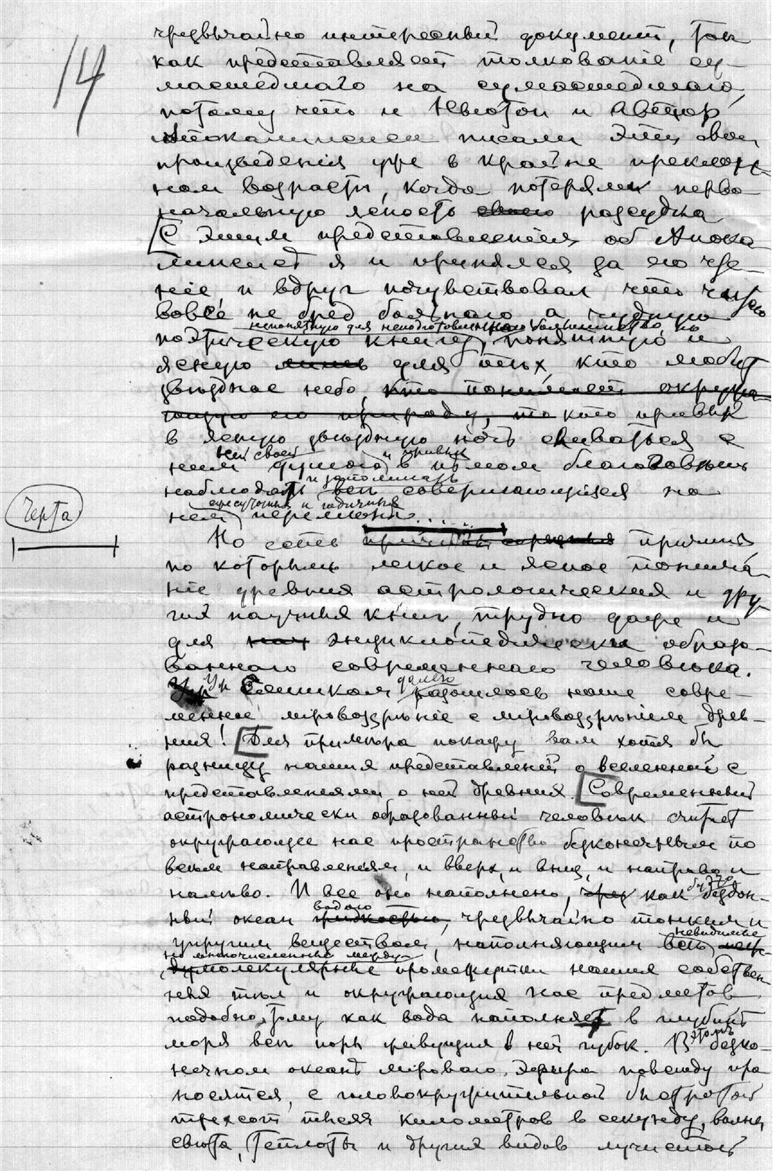 14
чрезвычайно интересный документ, так
как представляет толкование су-
масшедшаго на сумасшедшаго,
потому что и Ньютон и автор
Апокалипсиса писали эти свои
произведения уже в крайне преклон-
ном возрасте, когда потеряли перво
начальную ясность своего рассудка
С этим представлением об Апока
липсисе я и принялся за его чте-
ние и вдруг почувствовал что читаю
вовсе не бред больного а чудную
непонятную для неподготовленного большинства, но
поэтическую книгу, понятную и
ясную лишь для тех, кто любит
звездное небо, кто понимает окружа
ющую его природу, и кто привык
в ясную звездную ночь сливаться с
ней своей и привык
ним душою в немом благоговении
и запоминать
наблюдать все совершающияся на
ежесуточныя и годичныя
нем перемены.
Черта
Но есть причины
по которым легкое и ясное понима-
ние древних астрологических и дру-
гих научных книг, трудно даже и
для энциклопедически образо-
ванного современного человека.
далеко
Слишком разошлось наше совре-
менное мировоззрение с мировоззрением древ-
них! Для примера покажу вам хотя бы
разницу наших представлений о вселенной с
представлениями о ней древних. Современный
астрономически образованный человек считает
окружающее нас пространство безконечным по
всем направлениям, и вверх, и вниз, и направо и
будто
налево. И все оно наполнено, как бездон-
водою
ный океан жидкостью, чрезвычайно тонким и
невидимые
упругим веществом, наполняющим все
но многочисленные между
молекулярные промежутки наших собствен
ных тел и окружающих нас предметов
подобно тому как вода наполняет в глубине
этом
моря все поры живущих в ней губок. В безко-
нечном океане мирового эфира повсюду про
носятся, с головокружительной быстротой
трехсот тысяч километров в секунду, волны
света, теплоты и других видов лучистой